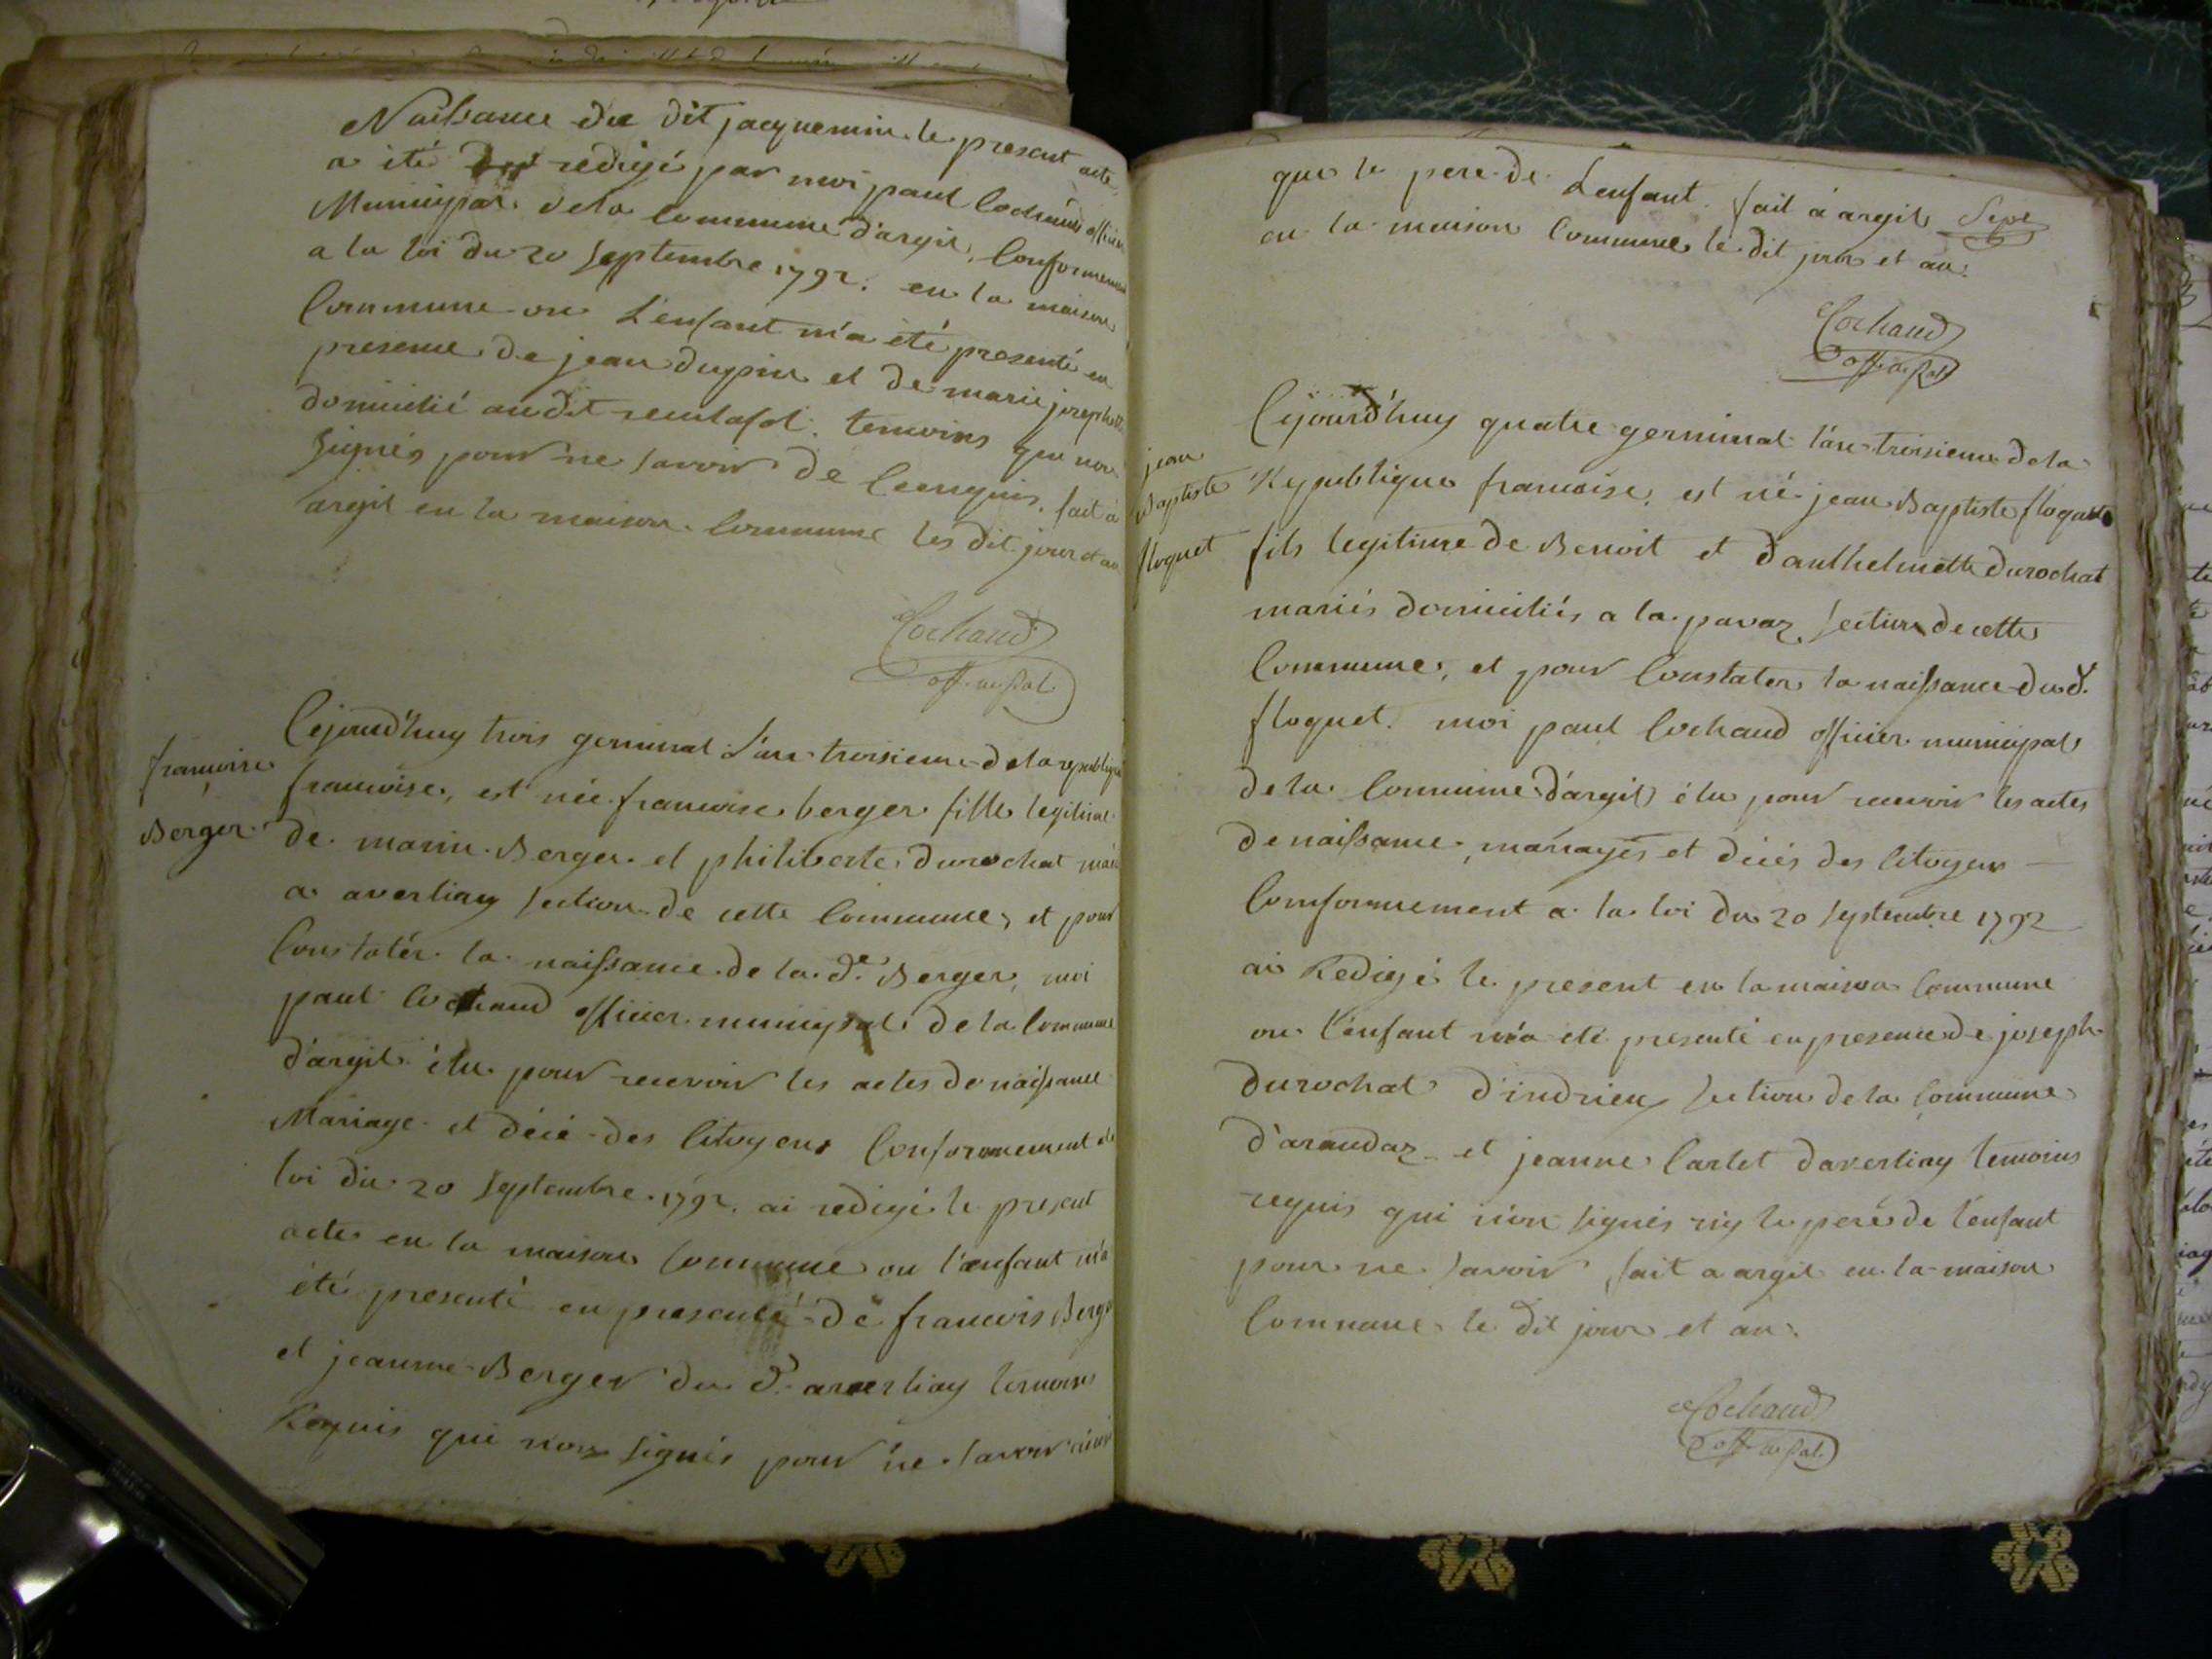 Naissance du dit jacquemin le present acte
a été redigé par moi paul Cochaud officier
Municipal de la Commune d'argil, Conformement
a la loi du 20 septembre 1792. en la maison
Commune ou L'enfant m'a été presenté en
presence de jean dupin et de marie josephette
domicilié audit temoins qui non
signés pour ne savoir de Ce enquis. fait à
argil en la maison Commune les dit jour et an
Cochaud
off. mpal
françoise
Berger
Cejourd'huy trois germinal L'an troisieme de la republique
francoise, est née francoise berger fille legitime
de marin Berger et philiberte durochat mariés
a averliay section de cette Commune, et pour
Constatér la naissance de la de. Berger, moi
paul Cochaud officier municipal de la Commune
d'argil élu pour recevoir les actes de naissance
Mariage et décé des Citoyens Conformement a la
loi du 20 septembre 1792. ai redigé le present
acte en la maison Commune ou l'enfant m'a
été presenté en presence de francois Berger
et jeanne Berger du d. averliay temoins
Requis qui non signés pour ne savoir
que le pere de L'enfant. fait à argil
en la maison Commune le dit jour et an.
Sept
Cochaud
off. mpal
jean
Baptiste
floquet
Cejourd'huy quatre germinal l'an troisieme de la
Republique francoise, est né jean Baptiste floquet
fils legitime de Benoit et d'anthelmette durochat
mariés domiciliés a la pavaz section de cette
Commune, et pour Constater la naissance du d.
floquet. moi paul Cochaud officier municipal
de la Commune d'argil élu pour recevoir les actes
de naissance, mariages et décés des Citoyens
Comformement a la loi du 20 septembre 1792
ai Redigé le present en la maison Commune
ou l'enfant m'a été presenté en presence de joseph
durochat d'indrieu section de la Commune
d'arandaz et jeanne Carlet daverliay temoins
requis qui n'on signés niy le pere de l'enfant
pour ne savoir, fait a argil en la maison
Commune le dit jour et an.
Cochaud
off. mpal